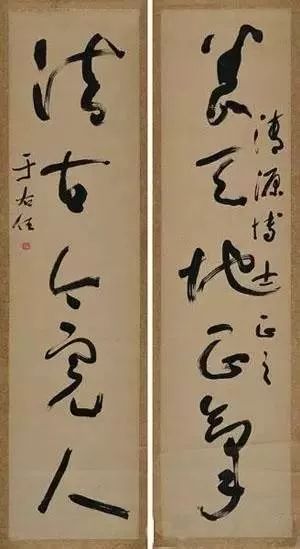 養天地正氣
源博士正之
法古今完人
于右任